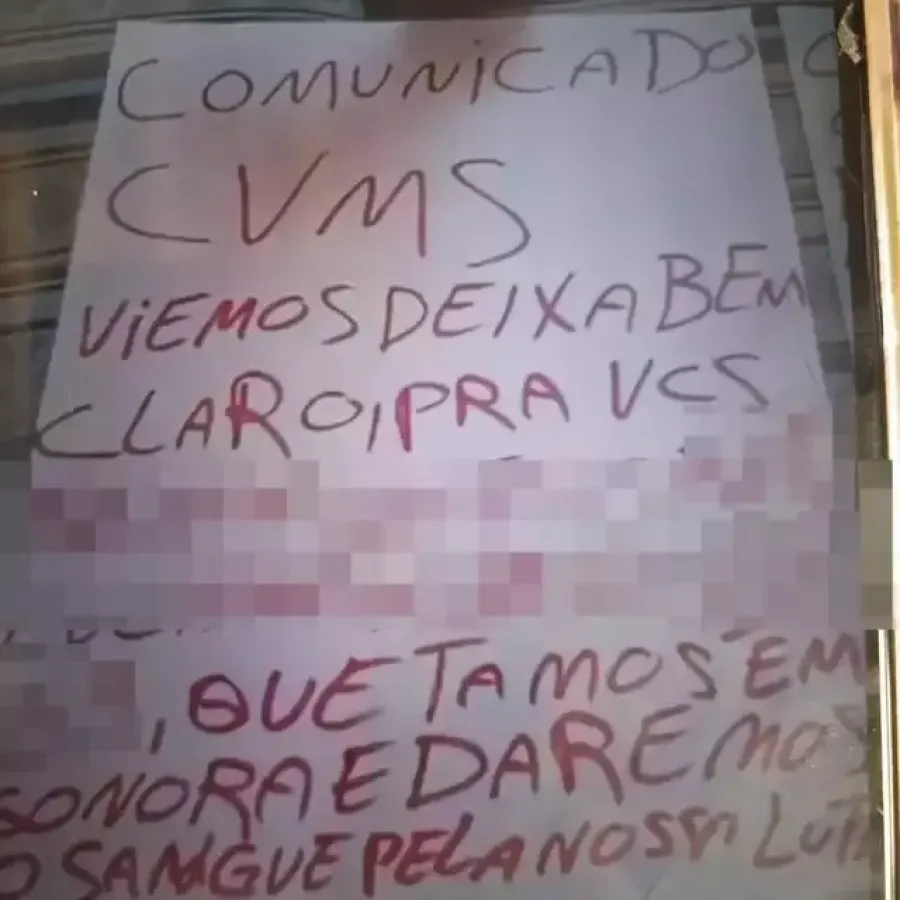 COMUNICADO
CVMS
VIEMOS DEIXA BEM
CLARO, PRA VCS
, QUE TAMOS EM
SONORA E DAREMOS
O SANGUE PELA NOSSA LUTA